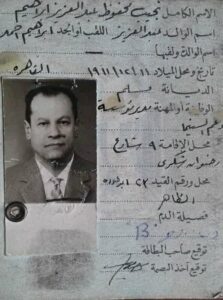 الاسم الكامل نجيب محفوظ عبد العزيز ابراهيم
اسم الوالد عبد العزيز اللقب أو الجد ابراهيم احمد
اسم الوالدة ولقبها
تاريخ ومحل الميلاد ١٩١١/١٢/١١ القاهرة
الديانة مسلم
الوظيفة أو المهنة مدير
محل الإقامة ٩ شارع
رضوان شكرى
محل ورقم القيد ٢٣
الظاهر
فصيلة الدم
B
توقيع صاحب البطاقة
توقيع آخذ البصمة